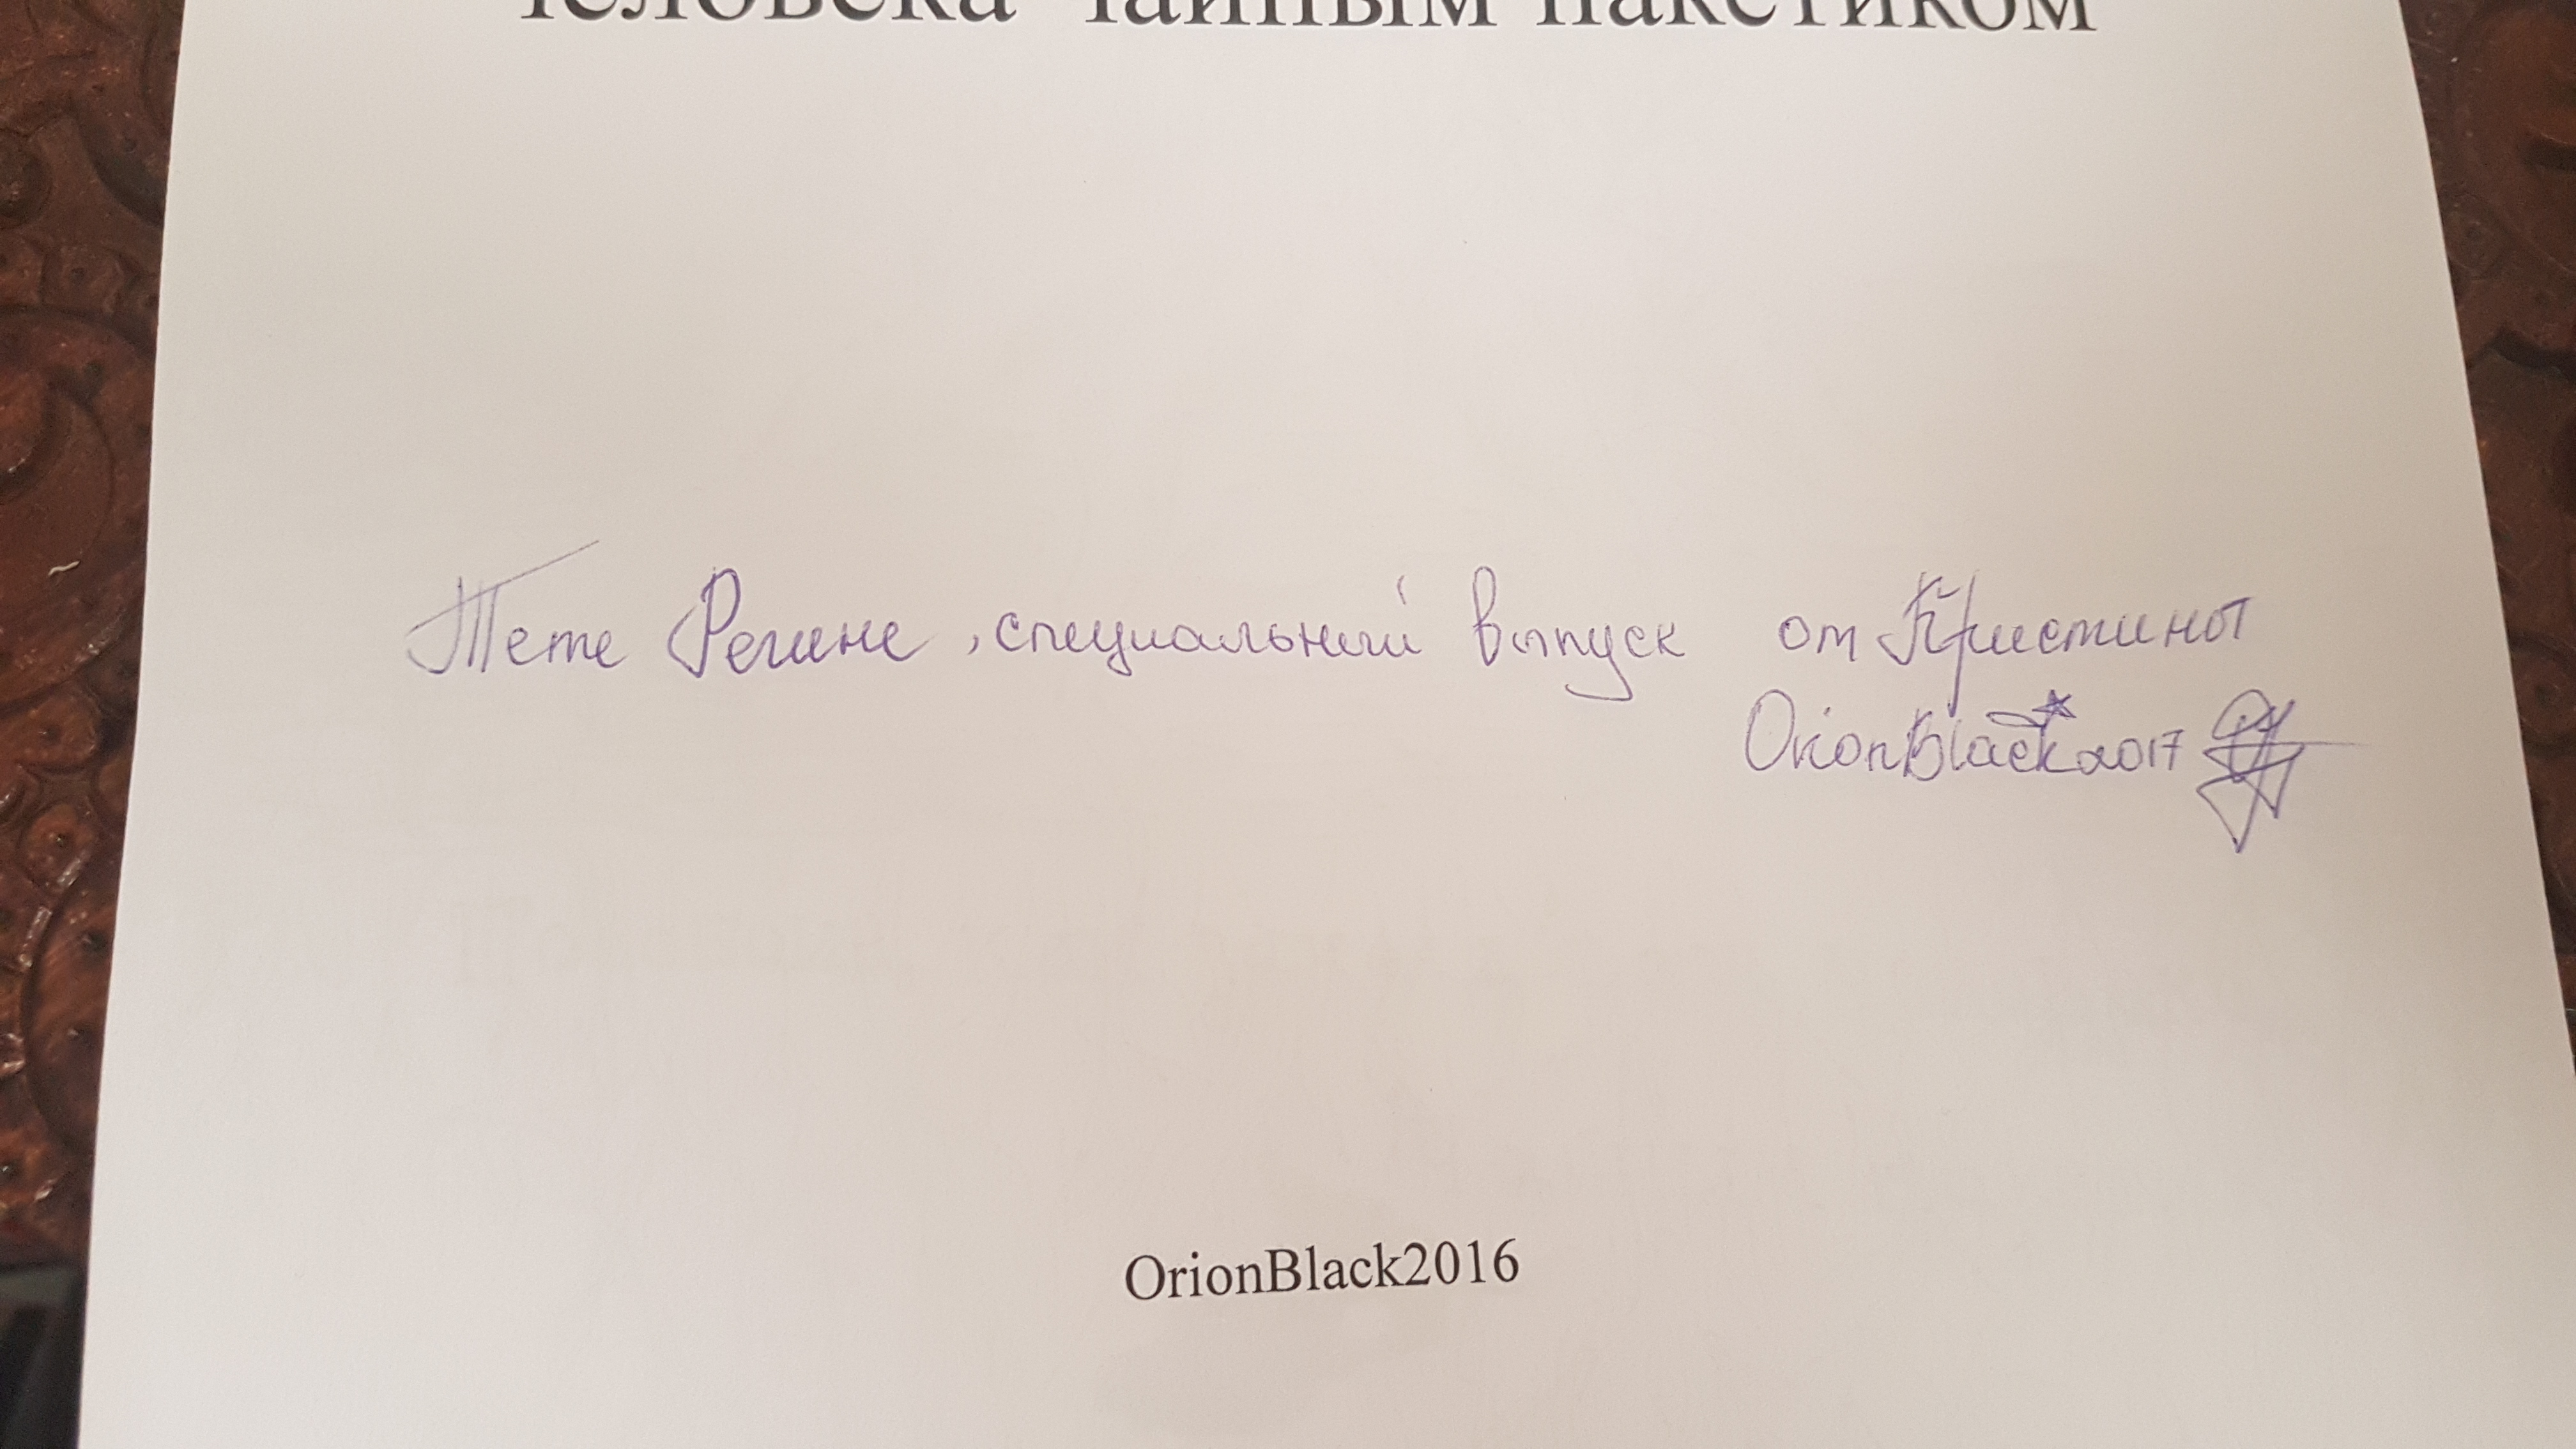 человека чайным пакетиком
Тете Регине, специальный выпуск от Кристины
OrionBlack2017
OrionBlack2016